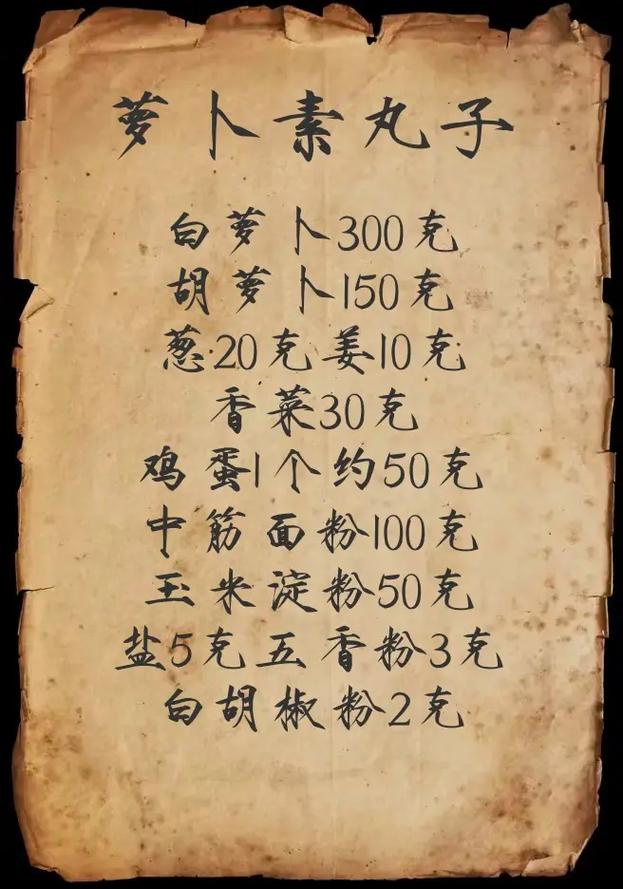 萝卜素丸子
白萝卜300克
胡萝卜150克
葱20克姜10克
香菜30克
鸡蛋1个约50克
中筋面粉100克
玉米淀粉50克
盐5克五香粉3克
白胡椒粉2克